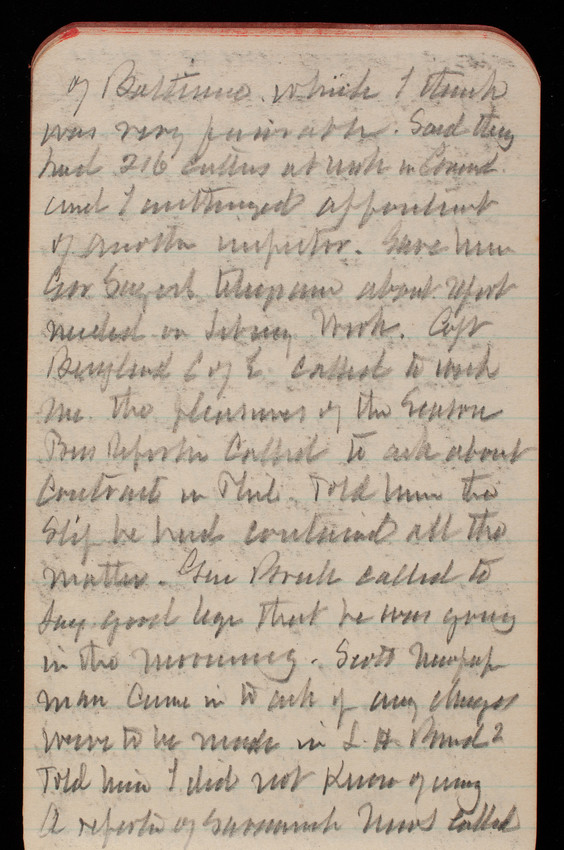 of Baltimore. which I think
was very favorable. Said they
had 216 cutters at work in
and I authorized appointment
of another inspector. Gave him
telegram about report
needed on Library Work. Capt
C of E called to wish
me the pleasures of the Season
Reporter Called to ask about
Contracts in Phil. Told him the
Slip he had contained all the
matter. Gen called to
Say good bye that he was going
in the morning. Scott Newspap
man came in to ask if any changes
were to be made in L. H. Board?
Told him I did not Know of any
A reporter of Savannah News called